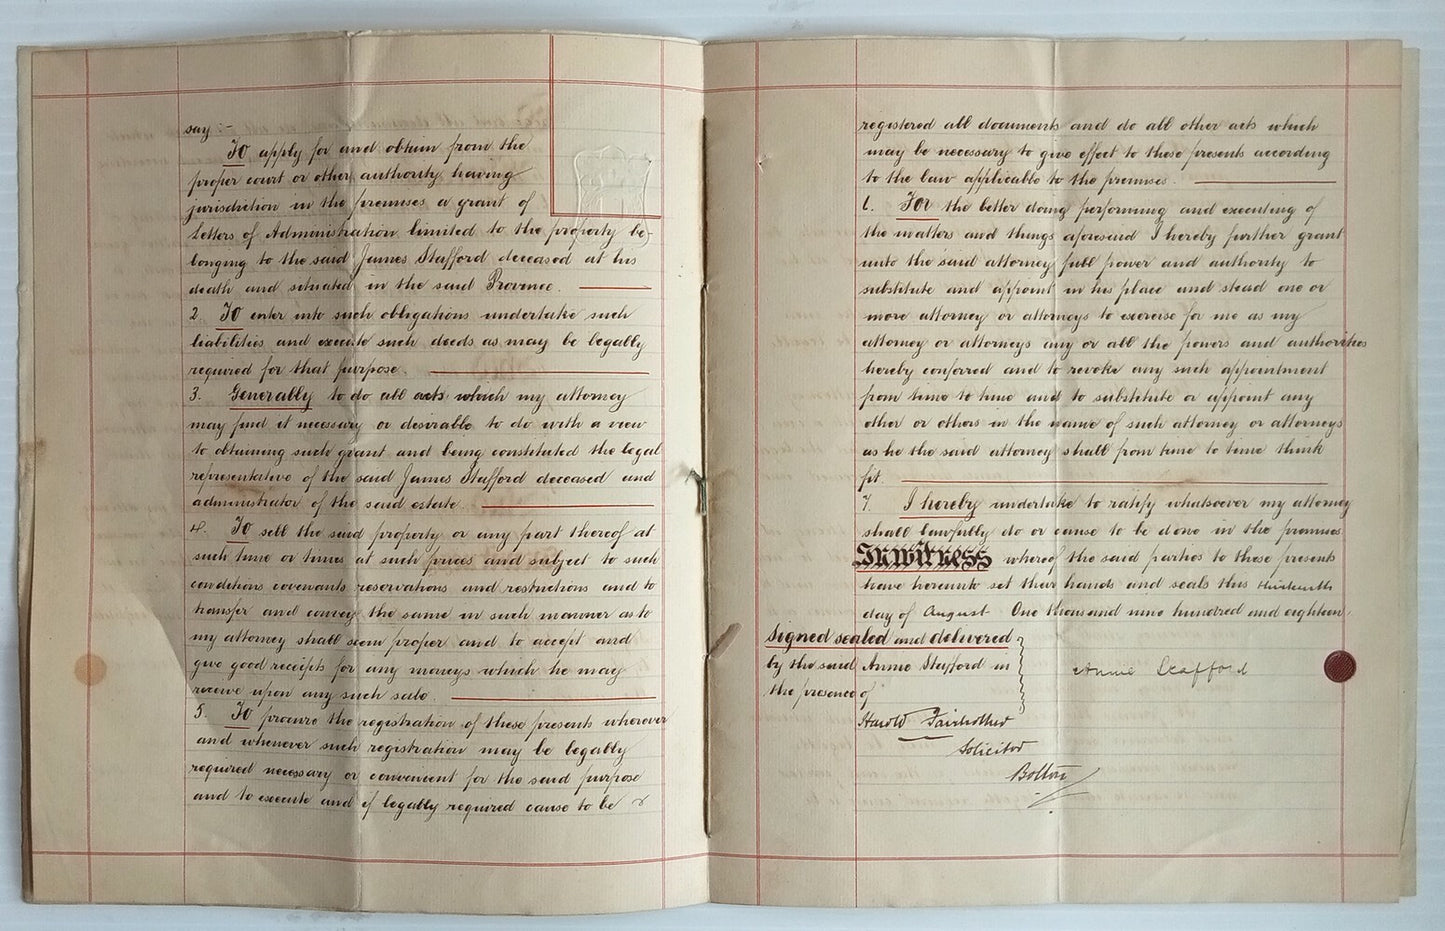 say :-
To apply for and obtain from the
proper court or other authority having
jurisdiction in the premises a grant of
Letters of Administration limited to the property be-
longing to the said James Stafford deceased at his
death and situated in the said Province.
2. To enter into such obligations undertake such
liabilities and execute such deeds as may be legally
required for that purpose.
3. Generally to do all acts which my attorney
may find it necessary or desirable to do with a view
to obtaining such grant and being constituted the legal
representative of the said James Stafford deceased and
administrator of the said estate.
4. To sell the said property or any part thereof at
such time or times at such prices and subject to such
conditions covenants reservations and restrictions and to
transfer and convey the same in such manner as to
my attorney shall seem proper and to accept and
give good receipts for any moneys which he may
receive upon any such sale.
5. To procure the registration of these presents wherever
and whenever such registration may be legally
required necessary or convenient for the said purpose
and to execute and if legally required cause to be
registered all documents and do all other acts which
may be necessary to give effect to these presents according
to the law applicable to the premises.
6. For the better doing performing and executing of
the matters and things aforesaid I hereby further grant
unto the said attorney full power and authority to
substitute and appoint in his place and stead one or
more attorney or attorneys to exercise for me as my
attorney or attorneys any or all the powers and authorities
hereby conferred and to revoke any such appointment
from time to time and to substitute or appoint any
other or others in the name of such attorney or attorneys
as he the said attorney shall from time to time think
fit.
7. I hereby undertake to ratify whatsoever my attorney
shall lawfully do or cause to be done in the premises
In witness whereof the said parties to these presents
have hereunto set their hands and seals this thirteenth
day of August One thousand nine hundred and eighteen.
Signed sealed and delivered
by the said Annie Stafford in
the presence of
Annie Stafford
Harold Fairbrother
Solicitor
Bolton